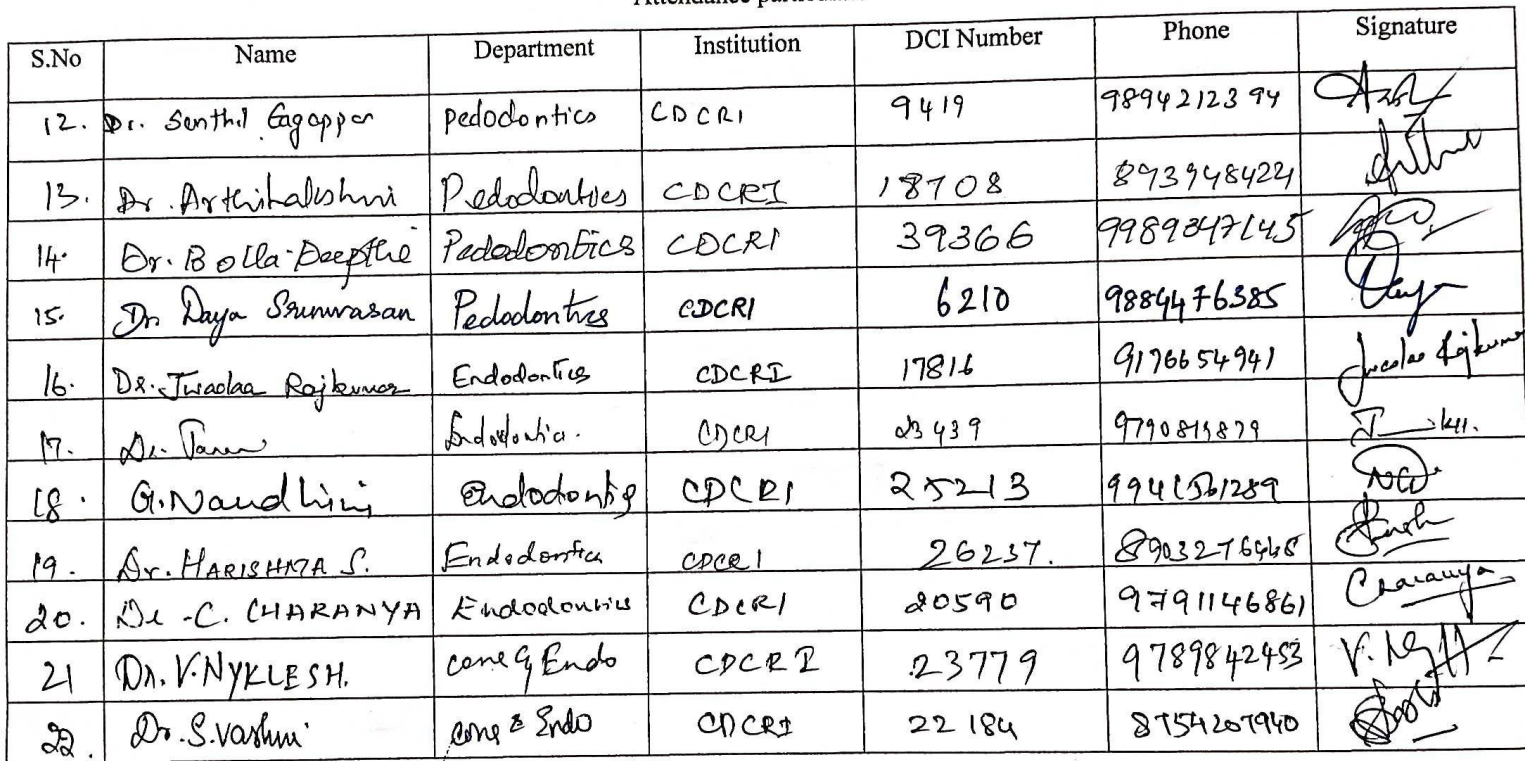 Attendance
S.No Name Department Institution DCI Number Phone Signature
12. Dr. Senthil Eagappan Pedodontics CDCRI 9419 9894212394
13. Dr. Arthilakshmi Pedodontics CDCRI 18708 8939484224
14. Dr. Bolla Deepthi Pedodontics CDCRI 39366 9989347145
15. Dr Daya Srinivasan Pedodontics CDCRI 6210 9884476385 Daya
16. Dr. Jwaalaa Rajkumar Endodontics CDCRI 17816 9176654941 Jwaalaa Rajkumar
17. Dr. Endodontics. CDCRI 23439 9790819879
18. G. Nandhini Endodontics CDCRI 25213
19. Dr. S. Endodontics CDCRI 26237.
20. Dr. C. CHARANYA Endodontics CDCRI 20590 9791146861 Charanya
21 Dr. V. NYKLESH. Cons & Endo CDCRI 23779 9789842453
22. Dr. S. Vashni Cons & Endo CDCRI 22184 8754207940